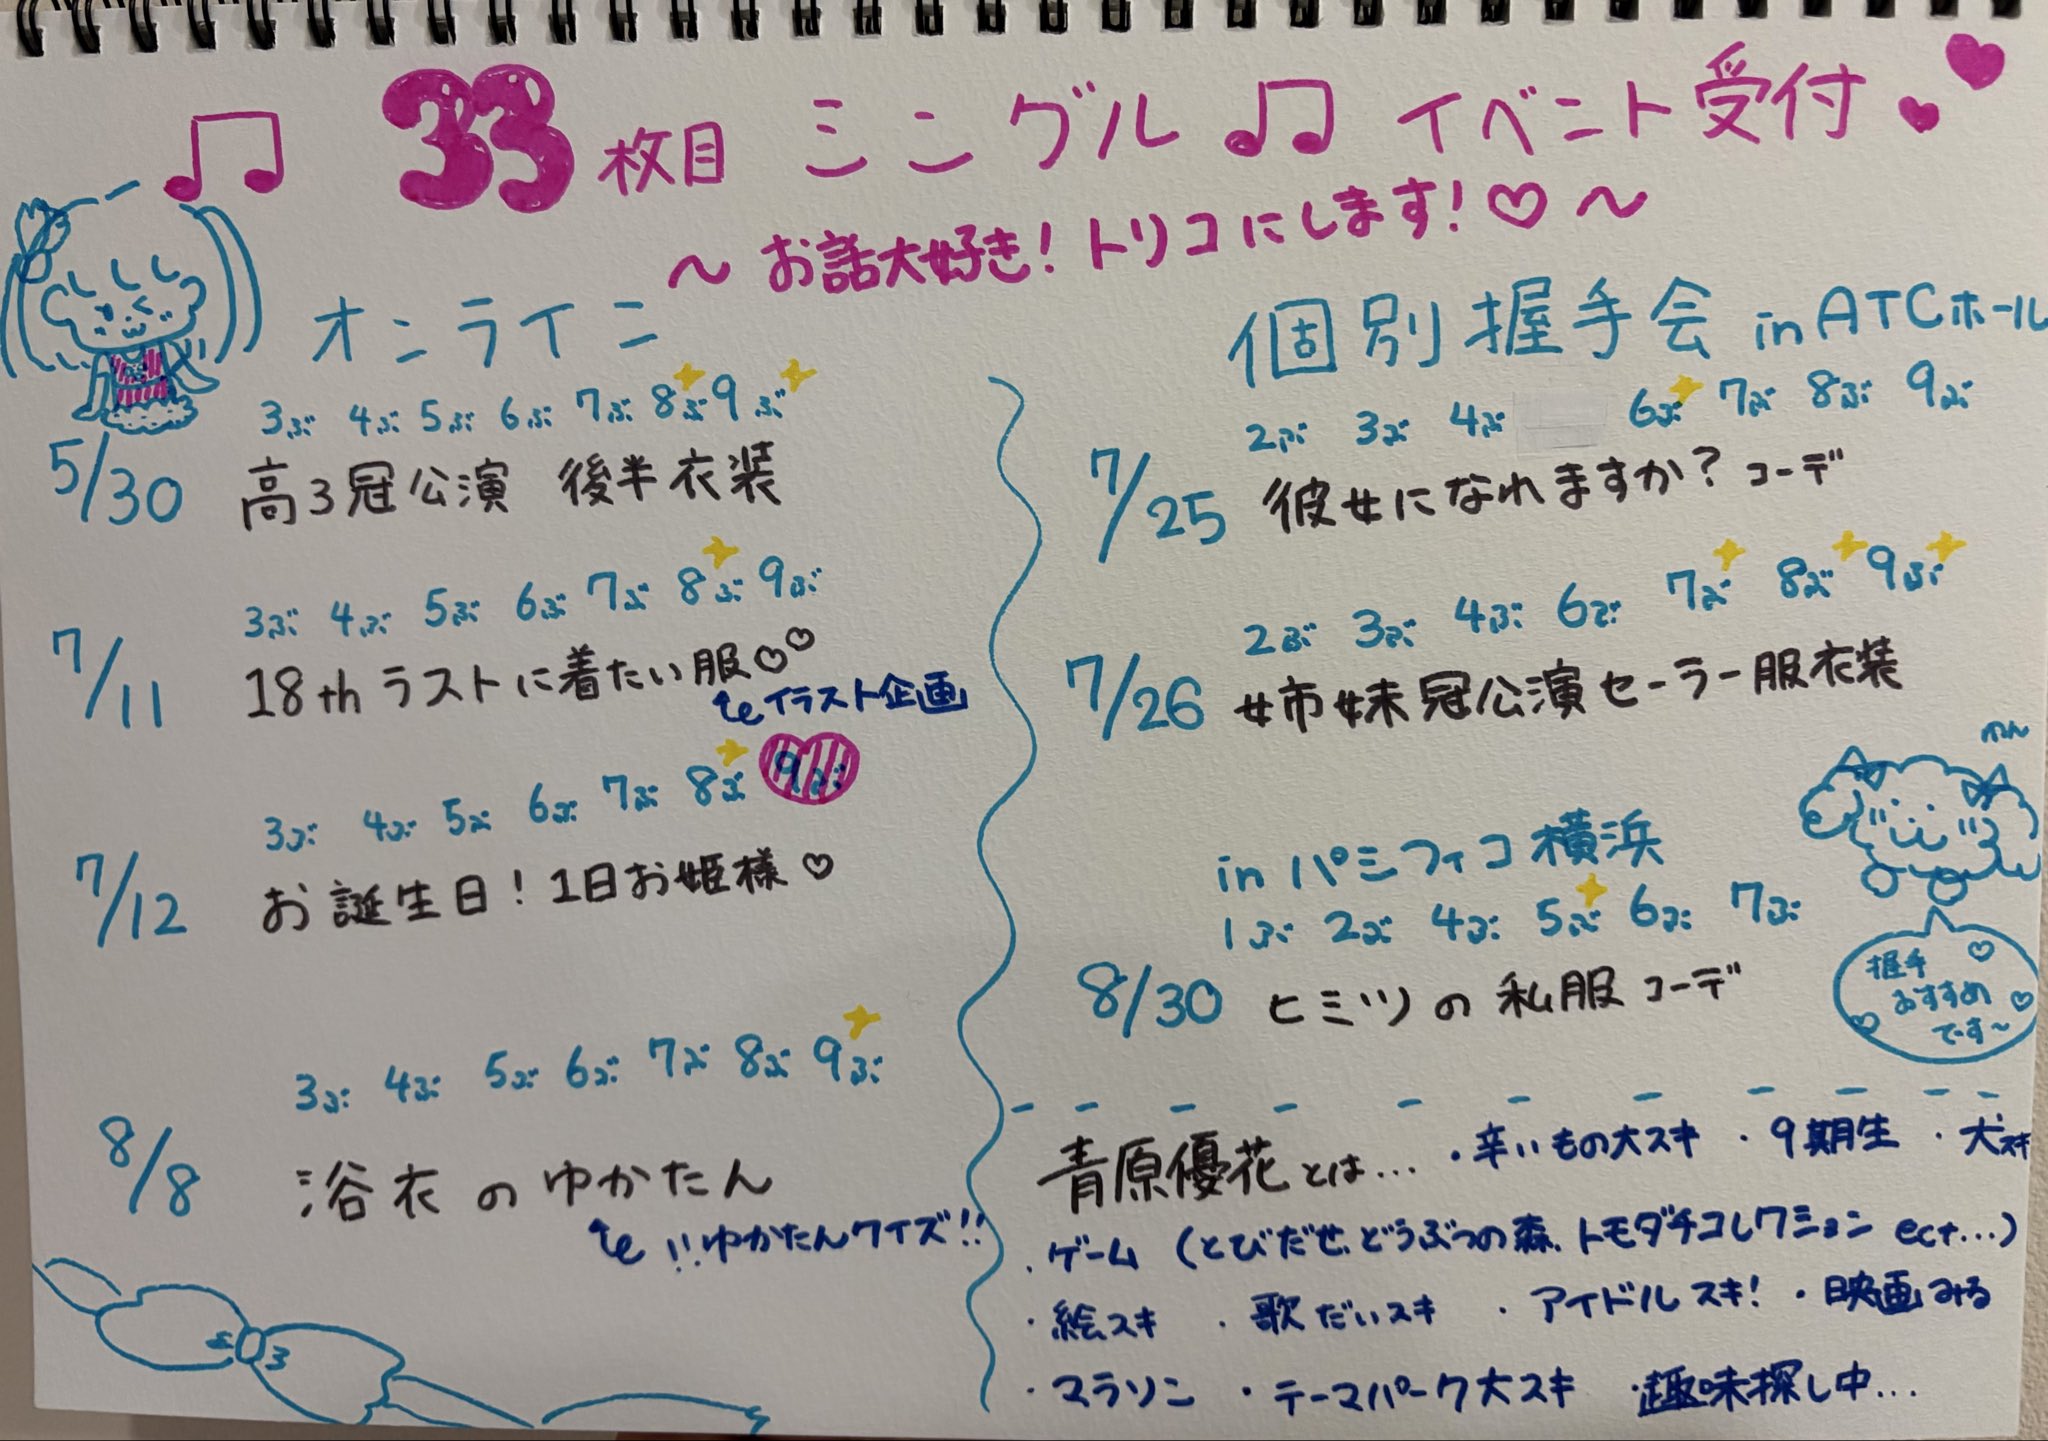 33枚目 シングル♫ イベント受付
〜お話大好き!トリコにします!♡〜
オンライン
3ぶ 4ぶ 5ぶ 6ぶ 7ぶ 8ぶ 9ぶ
5/30 高3冠公演 後半衣装
3ぶ 4ぶ 5ぶ 6ぶ 7ぶ 8ぶ 9ぶ
7/11 18thラストに着たい服♡♡
イラスト企画
3ぶ 4ぶ 5ぶ 6ぶ 7ぶ 8ぶ 9ぶ
7/12 お誕生日!1日お姫様♡
3ぶ 4ぶ 5ぶ 6ぶ 7ぶ 8ぶ 9ぶ
8/8 浴衣のゆかたん
!!ゆかたんクイズ!!
個別握手会 in ATCホール
2ぶ 3ぶ 4ぶ 6ぶ 7ぶ 8ぶ 9ぶ
7/25 彼女になれますか?コーデ
2ぶ 3ぶ 4ぶ 6ぶ 7ぶ 8ぶ 9ぶ
7/26 姉妹冠公演セーラー服衣装
in パシフィコ横浜
1ぶ 2ぶ 4ぶ 5ぶ 6ぶ 7ぶ
8/30 ヒミツの私服コーデ
握手
おすすめ
です〜
青原優花とは… ・辛いもの大スキ ・9期生 ・犬スキ
・ゲーム(とびだせどうぶつの森、トモダチコレクション ect…)
・絵スキ ・歌だいスキ ・アイドルスキ! ・映画みる
・マラソン ・テーマパーク大スキ ・趣味探し中…